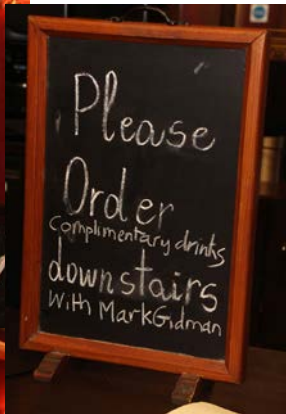 Please
Order
Complimentary drinks
downstairs
With Mark Gidman